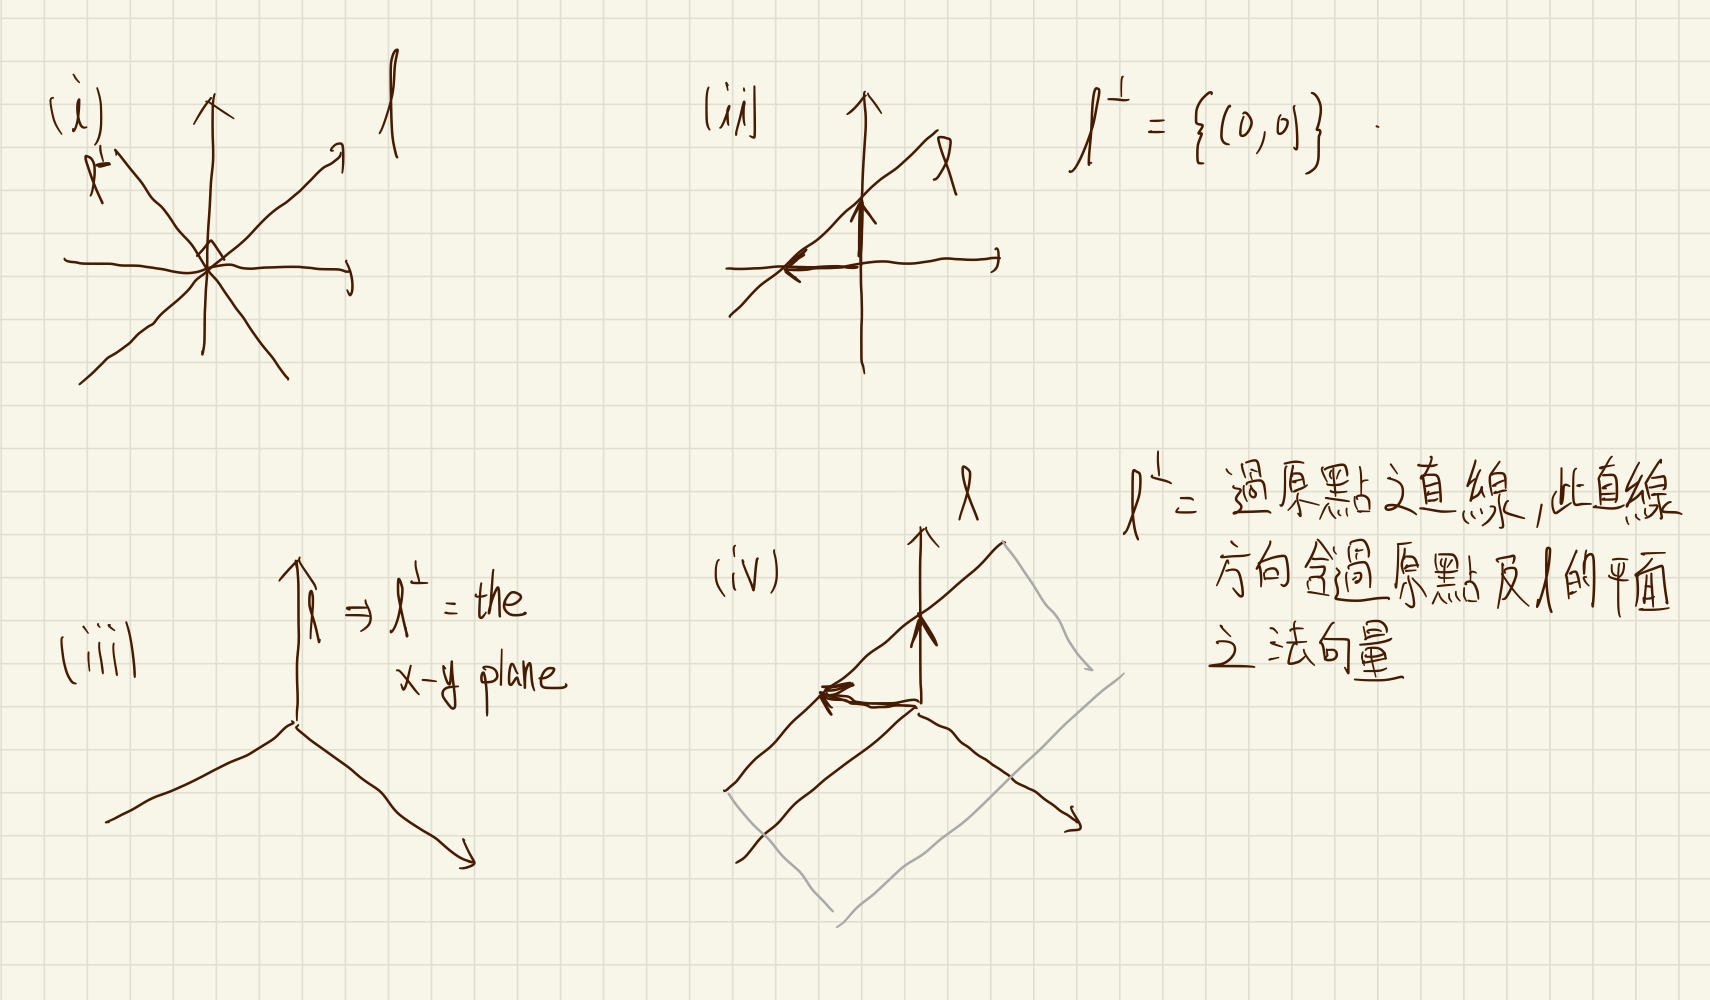 (i)
l
l⊥
(ii)
l
l⊥ = {(0,0)}.
(iii)
l ⇒ l⊥ = the
x-y plane
(iv)
l
l⊥ = 過原點之直線,此直線
方向含過原點及l的平面
之法向量